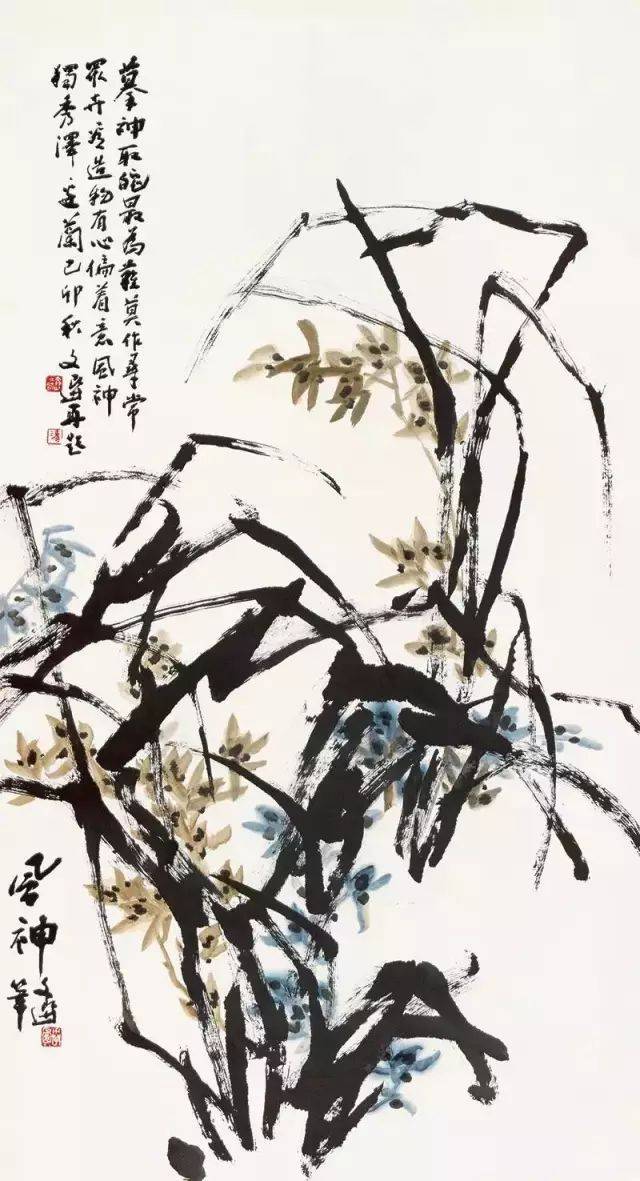 摹神取貌最為難莫作尋常
眾卉看造物有心偏着意風神
獨秀澤邊蘭己卯秋文再題
風神
筆